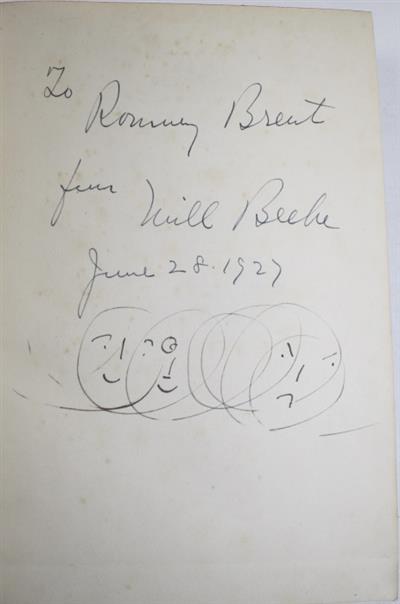 To
Romney Brent
from
Will Beebe
June 28. 1927